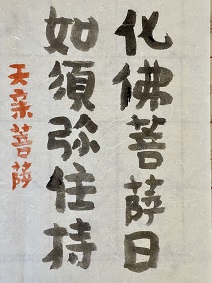 化佛菩薩日
如須弥住持
天亲菩萨